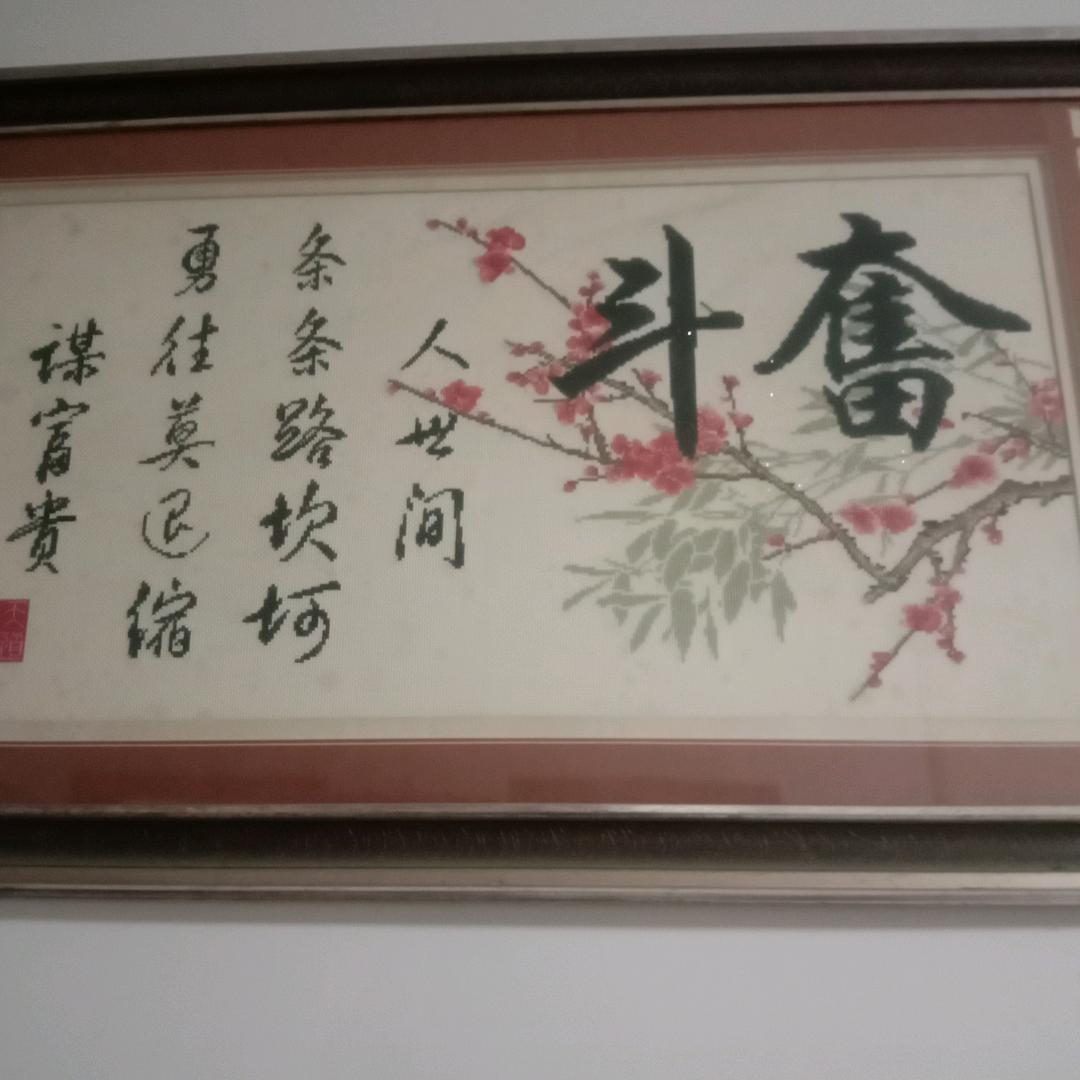 奮斗
人世间
条条路坎坷
勇往莫退缩
谋富贵